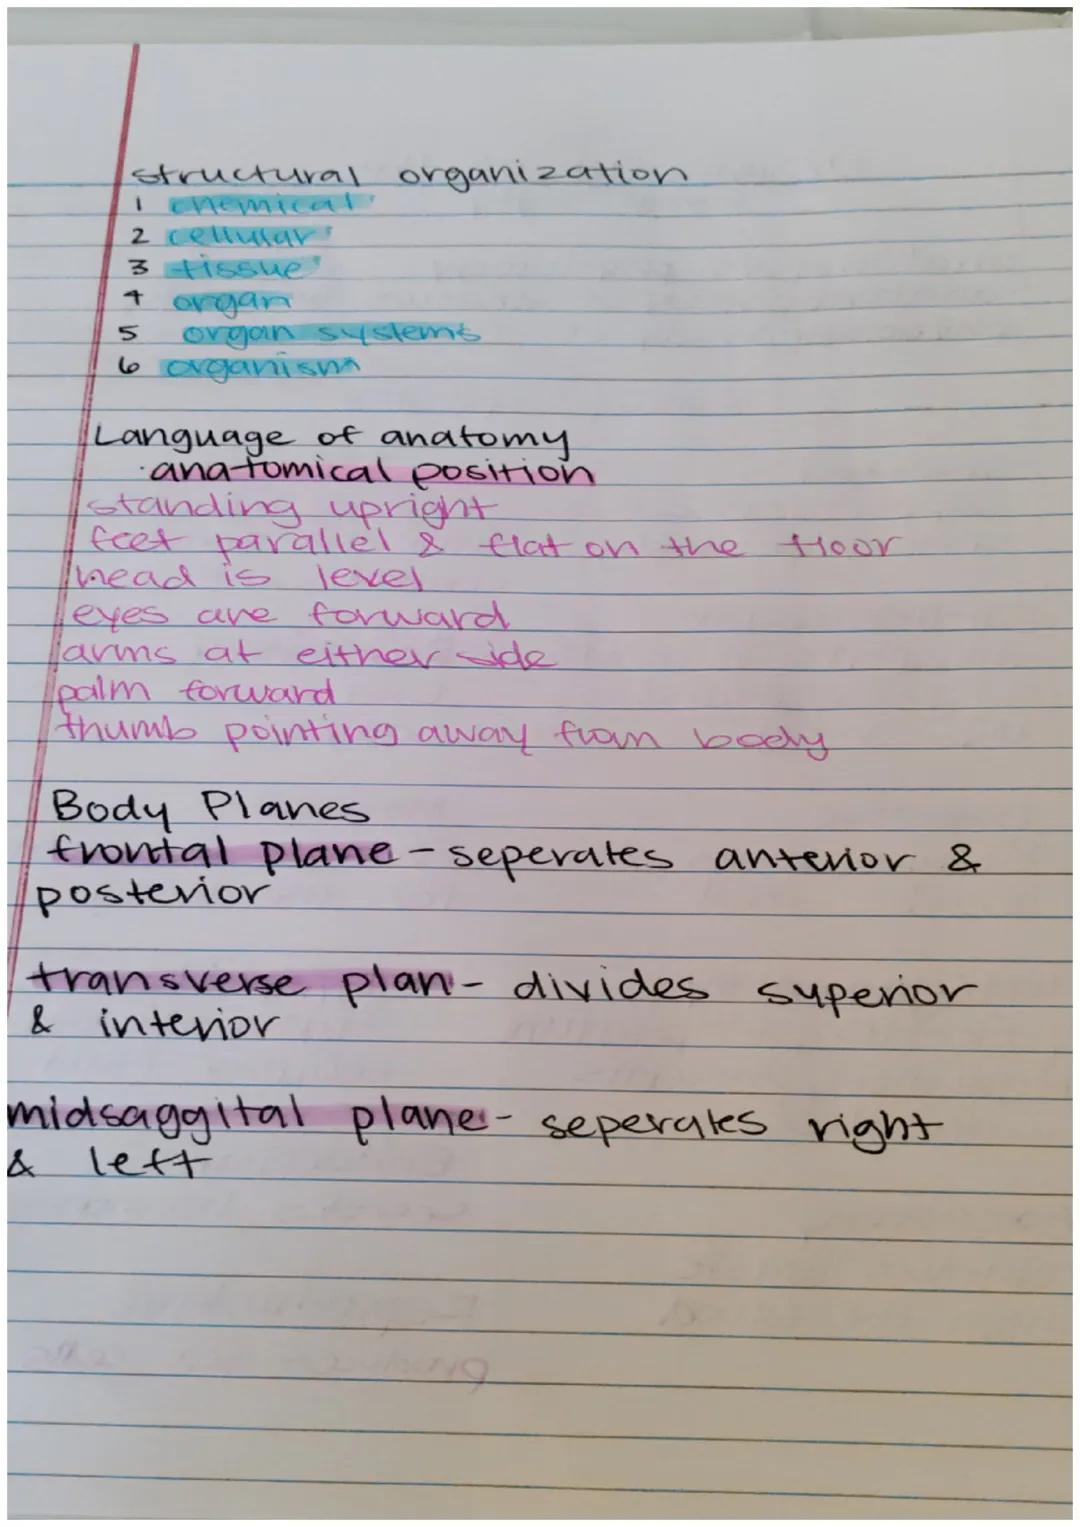 structural organization
1 chemical
2 cellular
3 tissue
4 organ
5 organ systems
6 organism
Language of anatomy
·anatomical position
standing upright
feet parallel & flat on the floor
head is level
eyes are forward
arms at either side
palm forward
thumb pointing away from body
Body Planes
frontal plane - seperates anterior &
posterior
transverse plan - divides superior
& interior
midsaggital plane - seperates right
& left